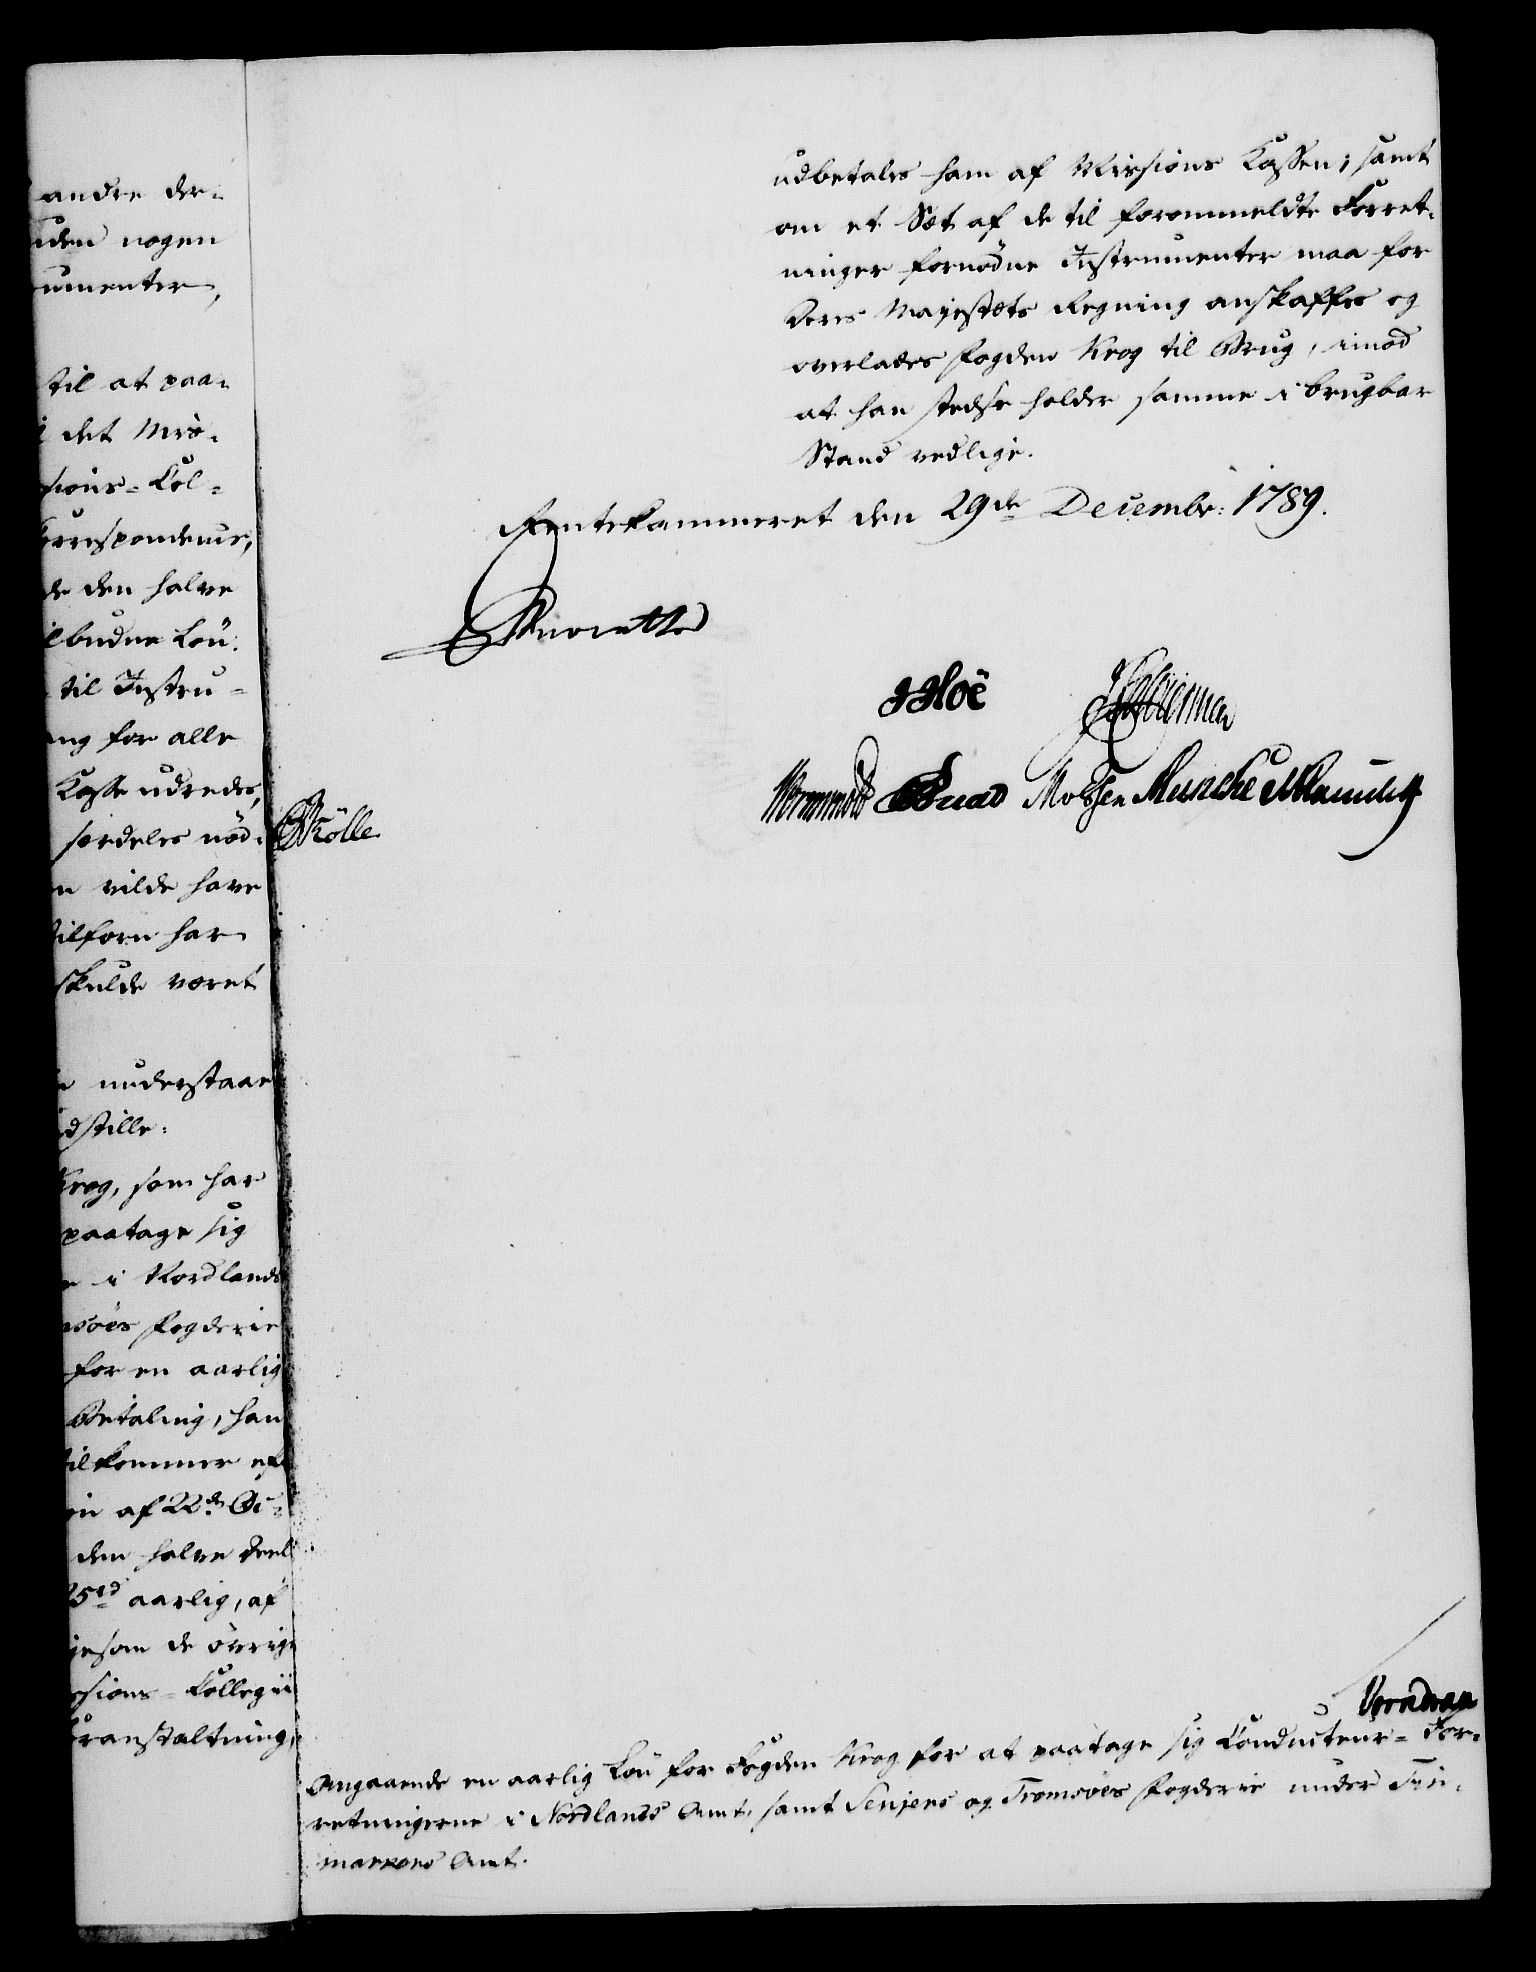 andre der-
uden nogen
umenter,
til at paa-
i det Mis-
sions-Col-
orrespondence,
de den halve
ilbudne Løn
til Instru-
ang for alle
Kasse udredes,
serdeles nöd-
en vilde have
tilforn har
skulde været
understaae
dstille:
Krog, som har
paatage sig
i Nordlands
msöes Fogderie
for en aarlig
Betaling, han
tilkommer ef
en af 22de Oc-
den halve Deel
5rd aarlig, af
esom de övrige
ssions-Collegii
ranstaltning,
udbetales ham af Missions Cassen; samt
om et Sæt af de til forommeldte Forret-
ninger fornödne Instrumenter maa for
Deres Majestæts Regning anskaffes og
overlades Fogden Krog til Brug, imod
at han stedse holder samme i brugbar
Stand vedlige.
Rentekammeret den 29de Decembr: 1789.
Hoë
Müncke
Rölle
Angaaende en aarlig Løn for Fogden Krog for at paatage sig Conducteur-For-
retningerne i Nordlands Amt, samt Senjens og Tromsöes Fogderie under Fin-
markens Amt.